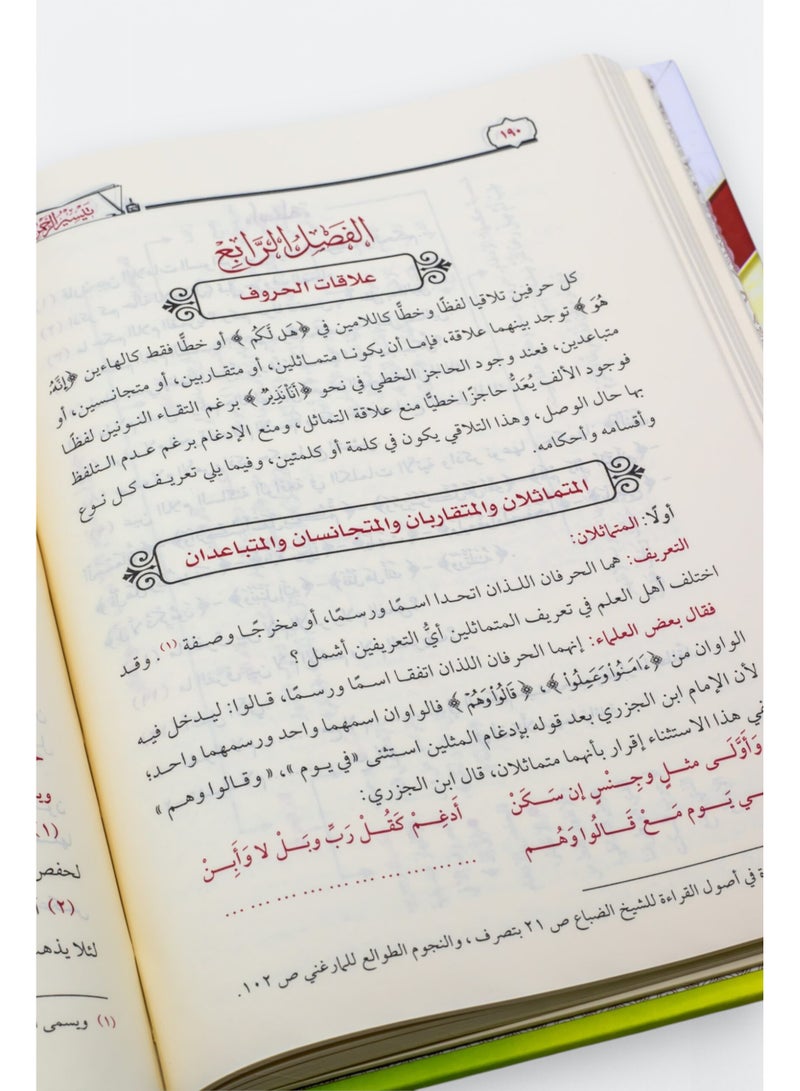 ١٩٠
تيسير الرحمن
الفصل الرابع
علاقات الحروف
كل حرفين تلاقيا لفظًا وخطًّا كاللامين في ﴿هَل لَّكُم﴾ أو خطًّا فقط كالهاءين ﴿إِنَّهُۥ
هُوَ﴾ توجد بينهما علاقة، فإما أن يكونا متماثلين، أو متقاربين، أو متجانسين، أو
متباعدين، فعند وجود الحاجز الخطي في نحو ﴿أَنَا۠ نَذِيرٌ﴾ برغم التقاء النونين لفظًا
فوجود الألف يُعَدُّ حاجزًا خطيًّا منع علاقة التماثل، ومنع الإدغام برغم عدم التلفظ
بها حال الوصل، وهذا التلاقي يكون في كلمة أو كلمتين، وفيما يلي تعريف كل نوع
وأقسامه وأحكامه.
المتماثلان والمتقاربان والمتجانسان والمتباعدان
أولًا: المتماثلان:
التعريف: هما الحرفان اللذان اتحدا اسمًا ورسمًا، أو مخرجًا وصفة (١). وقد
اختلف أهل العلم في تعريف المتماثلين أيُّ التعريفين أشمل ؟
فقال بعض العلماء: إنهما الحرفان اللذان اتفقا اسمًا ورسمًا، قالوا: ليدخل فيه
الواوان من ﴿ءَامَنُوا۟ وَعَمِلُوا۟﴾، ﴿قَالُوا۟ وَهُمْ﴾ فالواوان اسمهما واحد ورسمهما واحد؛
لأن الإمام ابن الجزري بعد قوله بإدغام المثلين استثنى «في يوم»، «وقالوا وهم»
في هذا الاستثناء إقرار بأنهما متماثلان، قال ابن الجزري:
وَأَوَّلَى مثلٍ وجِنْسٍ إن سَكَنْ أَدغِمْ كَقُلْ رَبِّ وبَلْ لا وَأَبِنْ
ـي يَوم مَعْ قَالُوا وَهُم ........................
ة في أصول القراءة للشيخ الضباع ص ٢١ بتصرف، والنجوم الطوالع للمارغني ص ١٠٢.
ويـ
(١)
لحفص
(٢)
لئلا يذهـ
(١) ويسمى